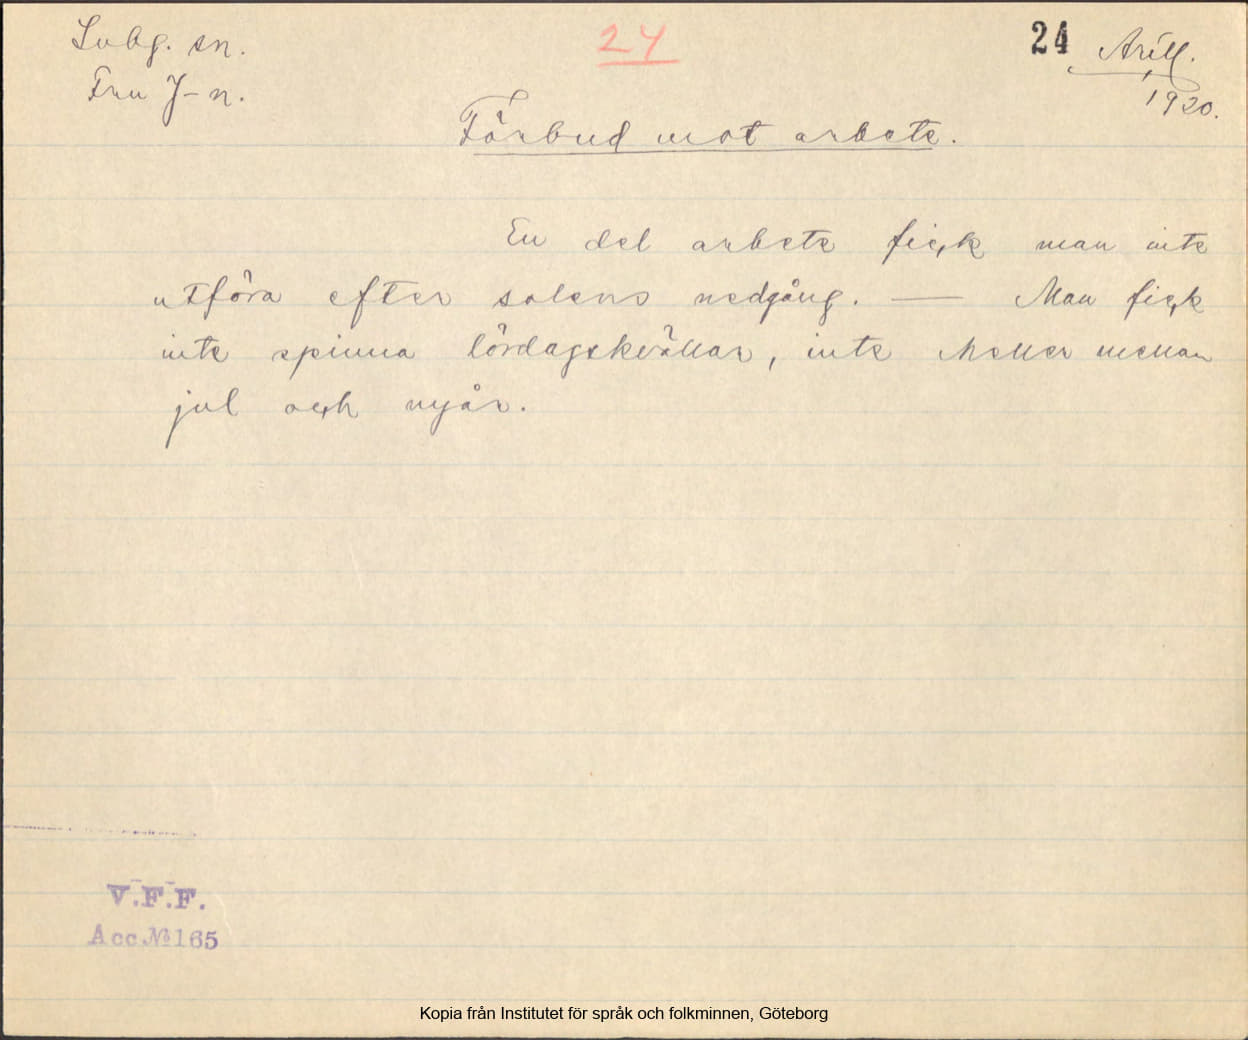 Svbg. sn.
Fru J-n.
24
24 Arill.
1920.
Förbud mot arbete.
En del arbete fick man inte
utföra efter solens nedgång. — Man fick
inte spinna lördagskvällar, inte heller mellan
jul och nyår.
V.F.F.
Acc.№165
Kopia från Institutet för språk och folkminnen, Göteborg